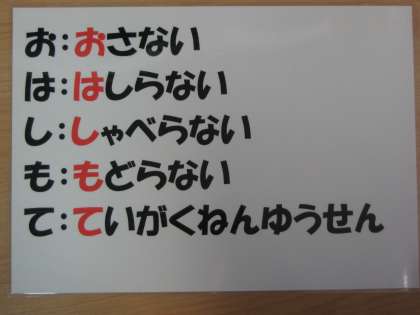 お:おさない
は:はしらない
し:しゃべらない
も:もどらない
て:ていがくねんゆうせん